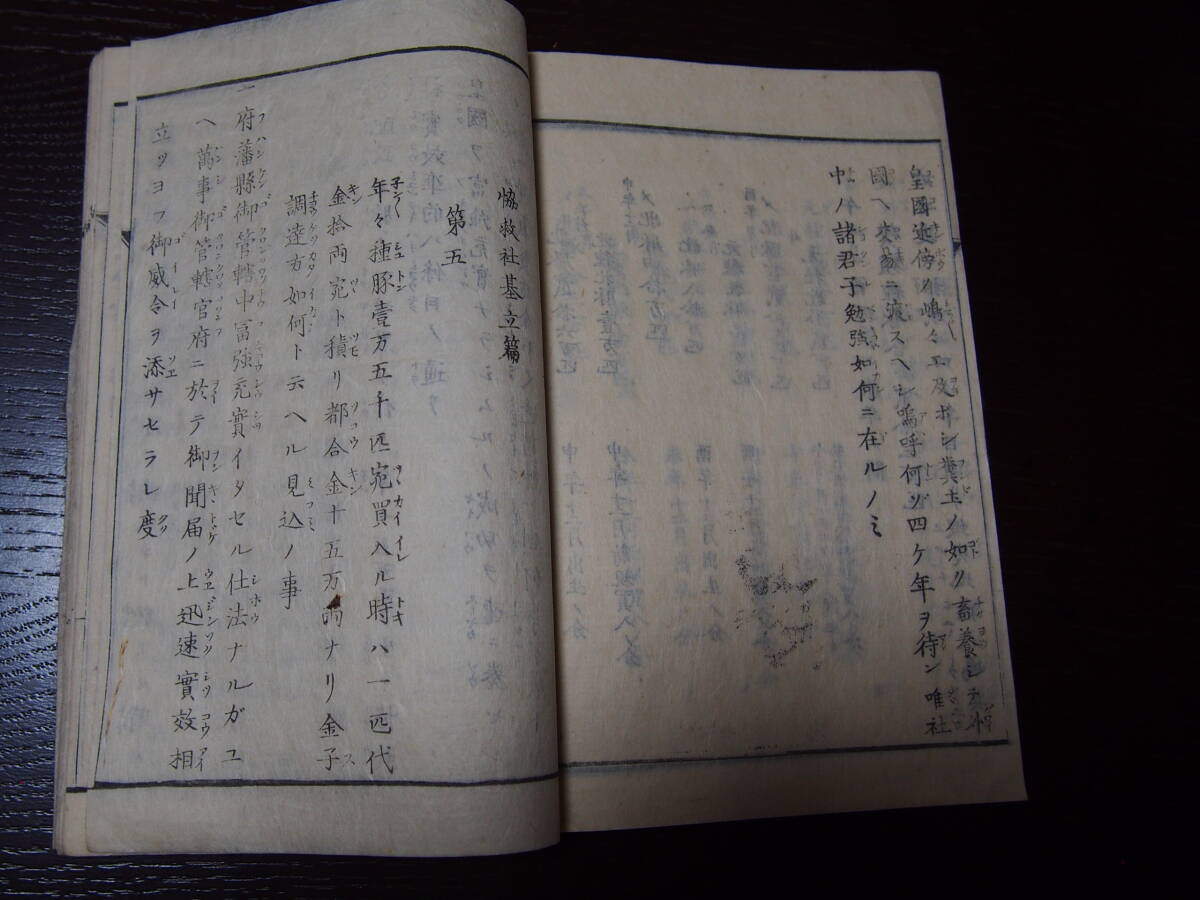 皇國近傍ノ嶋々エ及ボシ糞土ノ如ク畜養シテ外
國ヘ交易ニ渡スヘシ嗚呼何ソ四ケ年ヲ待ン唯社
中ノ諸君子勉強如何ニ在ルノミ
協救社基立篇
第五
年々種豚壹万五千匹宛買入ル時ハ一匹代
金拾両宛ト積リ都合金十五万両ナリ金子
調達方如何ト云ヘル見込ノ事
一府藩縣御管轄中冨強充實イタセル仕法ナルガユ
ヘ萬事御管轄官府ニ於テ御聞届ノ上迅速實效相
立ツヨフ御威令ヲ添サセラレ度